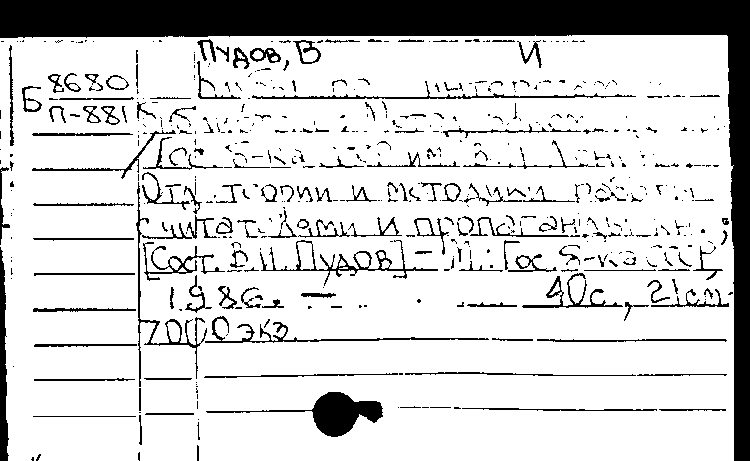 Пудов, В И
Б 8680
П-881
Клубы по интересам в
библиотеке: Метод.
Гос. б-ка СССР им. В. И. Ленина.
Отд. теории и методики работы
с читателями и пропаганды кн.;
[Сост. В.И. Пудов] – М.: Гос. б-ка СССР,
1986. – 40с., 21см.
7000 экз.